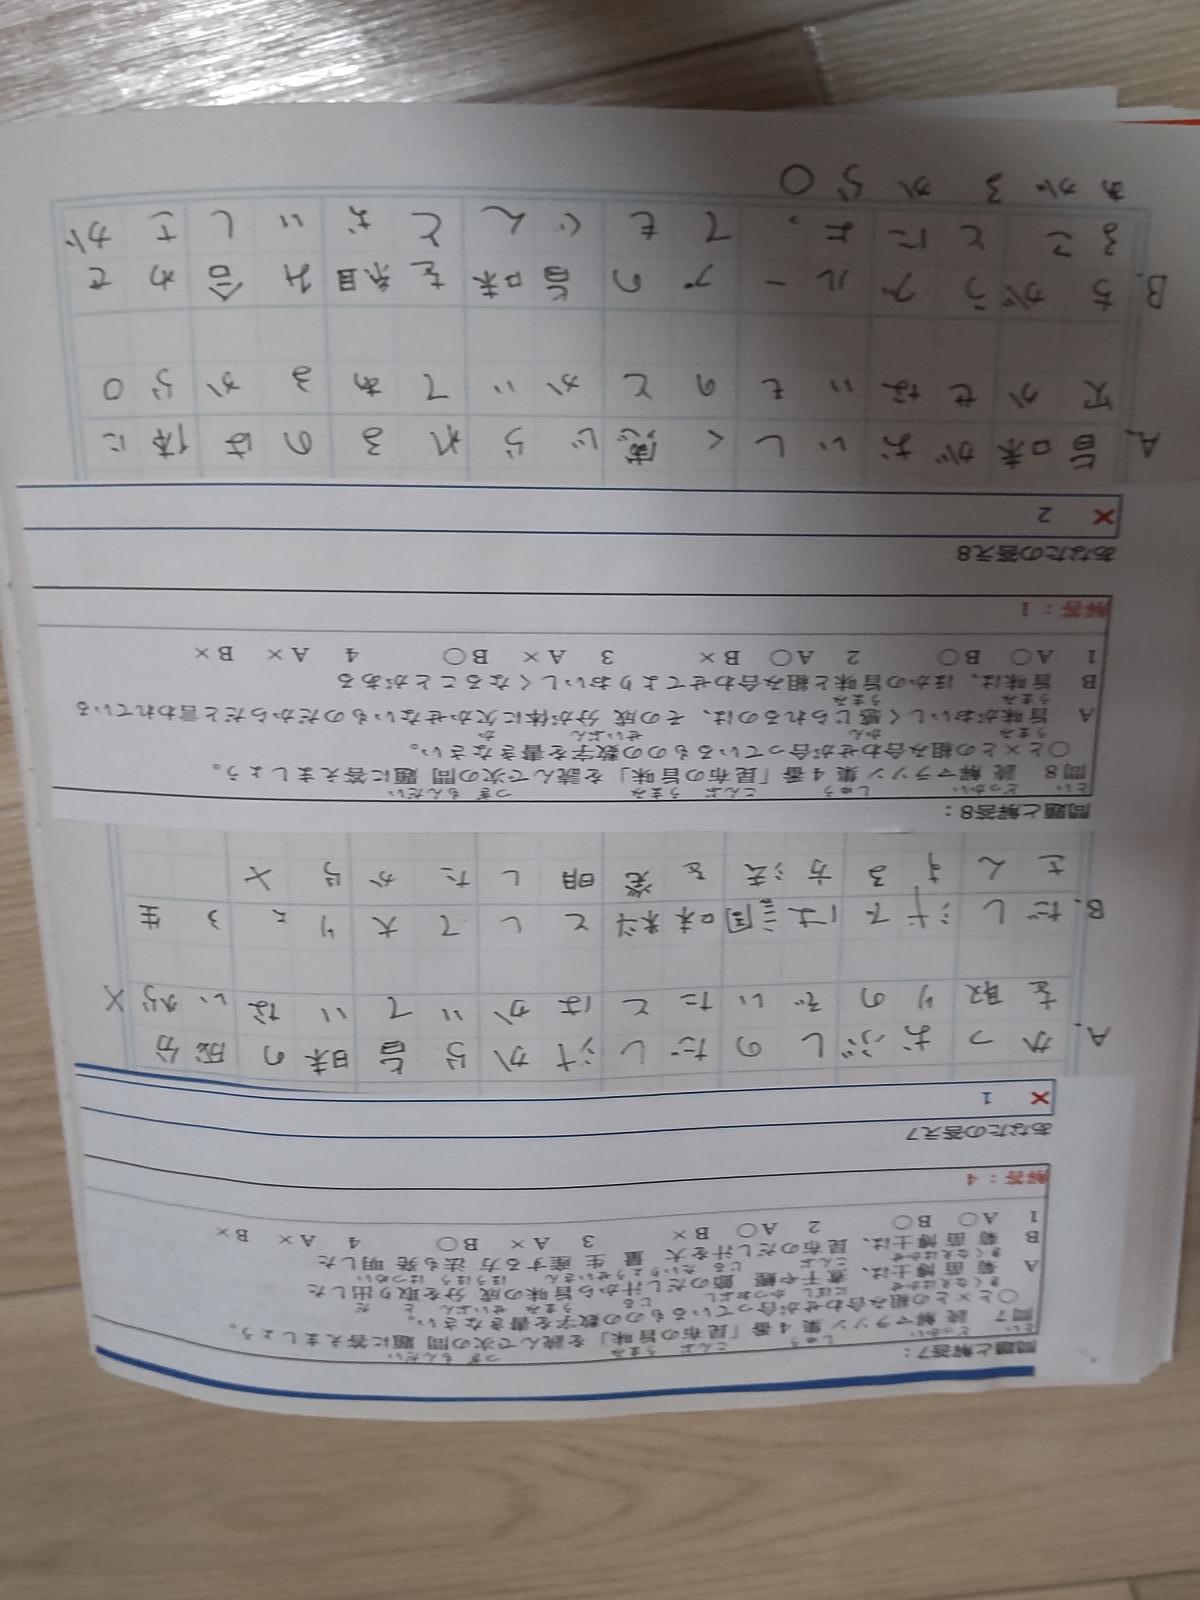 問題と解答7:
問7 読解マラソン集4番「昆布の旨味」を読んで次の問題に答えましょう。
○と×との組み合わせが合っているものの数字を書きなさい。
A 菊苗博士は、煮干や鰹節のだし汁から旨味の成分を取り出した
B 菊苗博士は、昆布のだし汁を大量生産する方法も発明した
1 A○ B○ 2 A○ B× 3 A× B○ 4 A× B×
解答:4
あなたの答え7
× 1
A. かつおぶしのだし汁から旨味の成分
を取りのぞいたとはかいていないから×
B. だし汁では調味料として大りょう生
さんする方法を発明したから×
問題と解答8:
問8 読解マラソン集4番「昆布の旨味」を読んで次の問題に答えましょう。
○と×との組み合わせが合っているものの数字を書きなさい。
A 旨味がおいしく感じられるのは、その成分が体に欠かせないものだからだと言われている
B 旨味は、ほかの旨味と組み合わせてよりおいしくなることがある
1 A○ B○ 2 A○ B× 3 A× B○ 4 A× B×
解答:1
あなたの答え8
× 2
A. 旨味がおいしく感じられるのは体に
欠かせないものとかいてあるから○
B. ちがうグループの旨味を組み合わせ
ることによって、ぐんとおいしさが
あがるから○